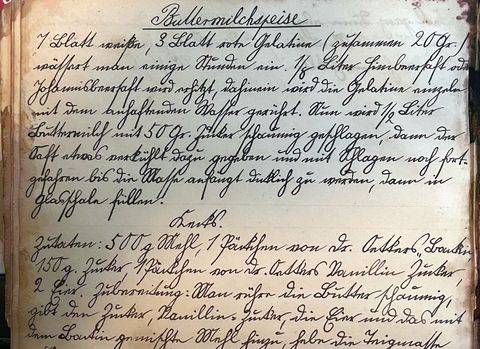 Buttermilchspeise
7 Blatt weiße, 3 Blatt rote Gelatine (zusammen 20 Gr.)
wässert man einige Stunden ein. 1/8 Liter Himbeersaft oder
Johannisbeersaft wird erhitzt, dahinein wird die Gelatine einzeln
mit dem anhaftenden Wasser gerührt. Nun wird 1/2 Liter
Buttermilch mit 50 Gr. Zucker schaumig geschlagen, dann der
Saft etwas verkühlt dazu gegeben und mit Schlagen noch fort-
gefahren bis die Masse anfängt dicklich zu werden, dann in
Glasschale füllen.
Keks.
Zutaten: 500 g Mehl, 1 Päckchen von Dr. Oetkers „Backin
150 g. Zucker, 1 Päckchen von Dr. Oetkers Vanillin Zucker,
2 Eier, Zubereitung: Man rühre die Butter schaumig,
gibt den Zucker, Vanillin-Zucker, die Eier und das mit
dem Backin gemischte Mehl hinzu, hebe die Teigmasse